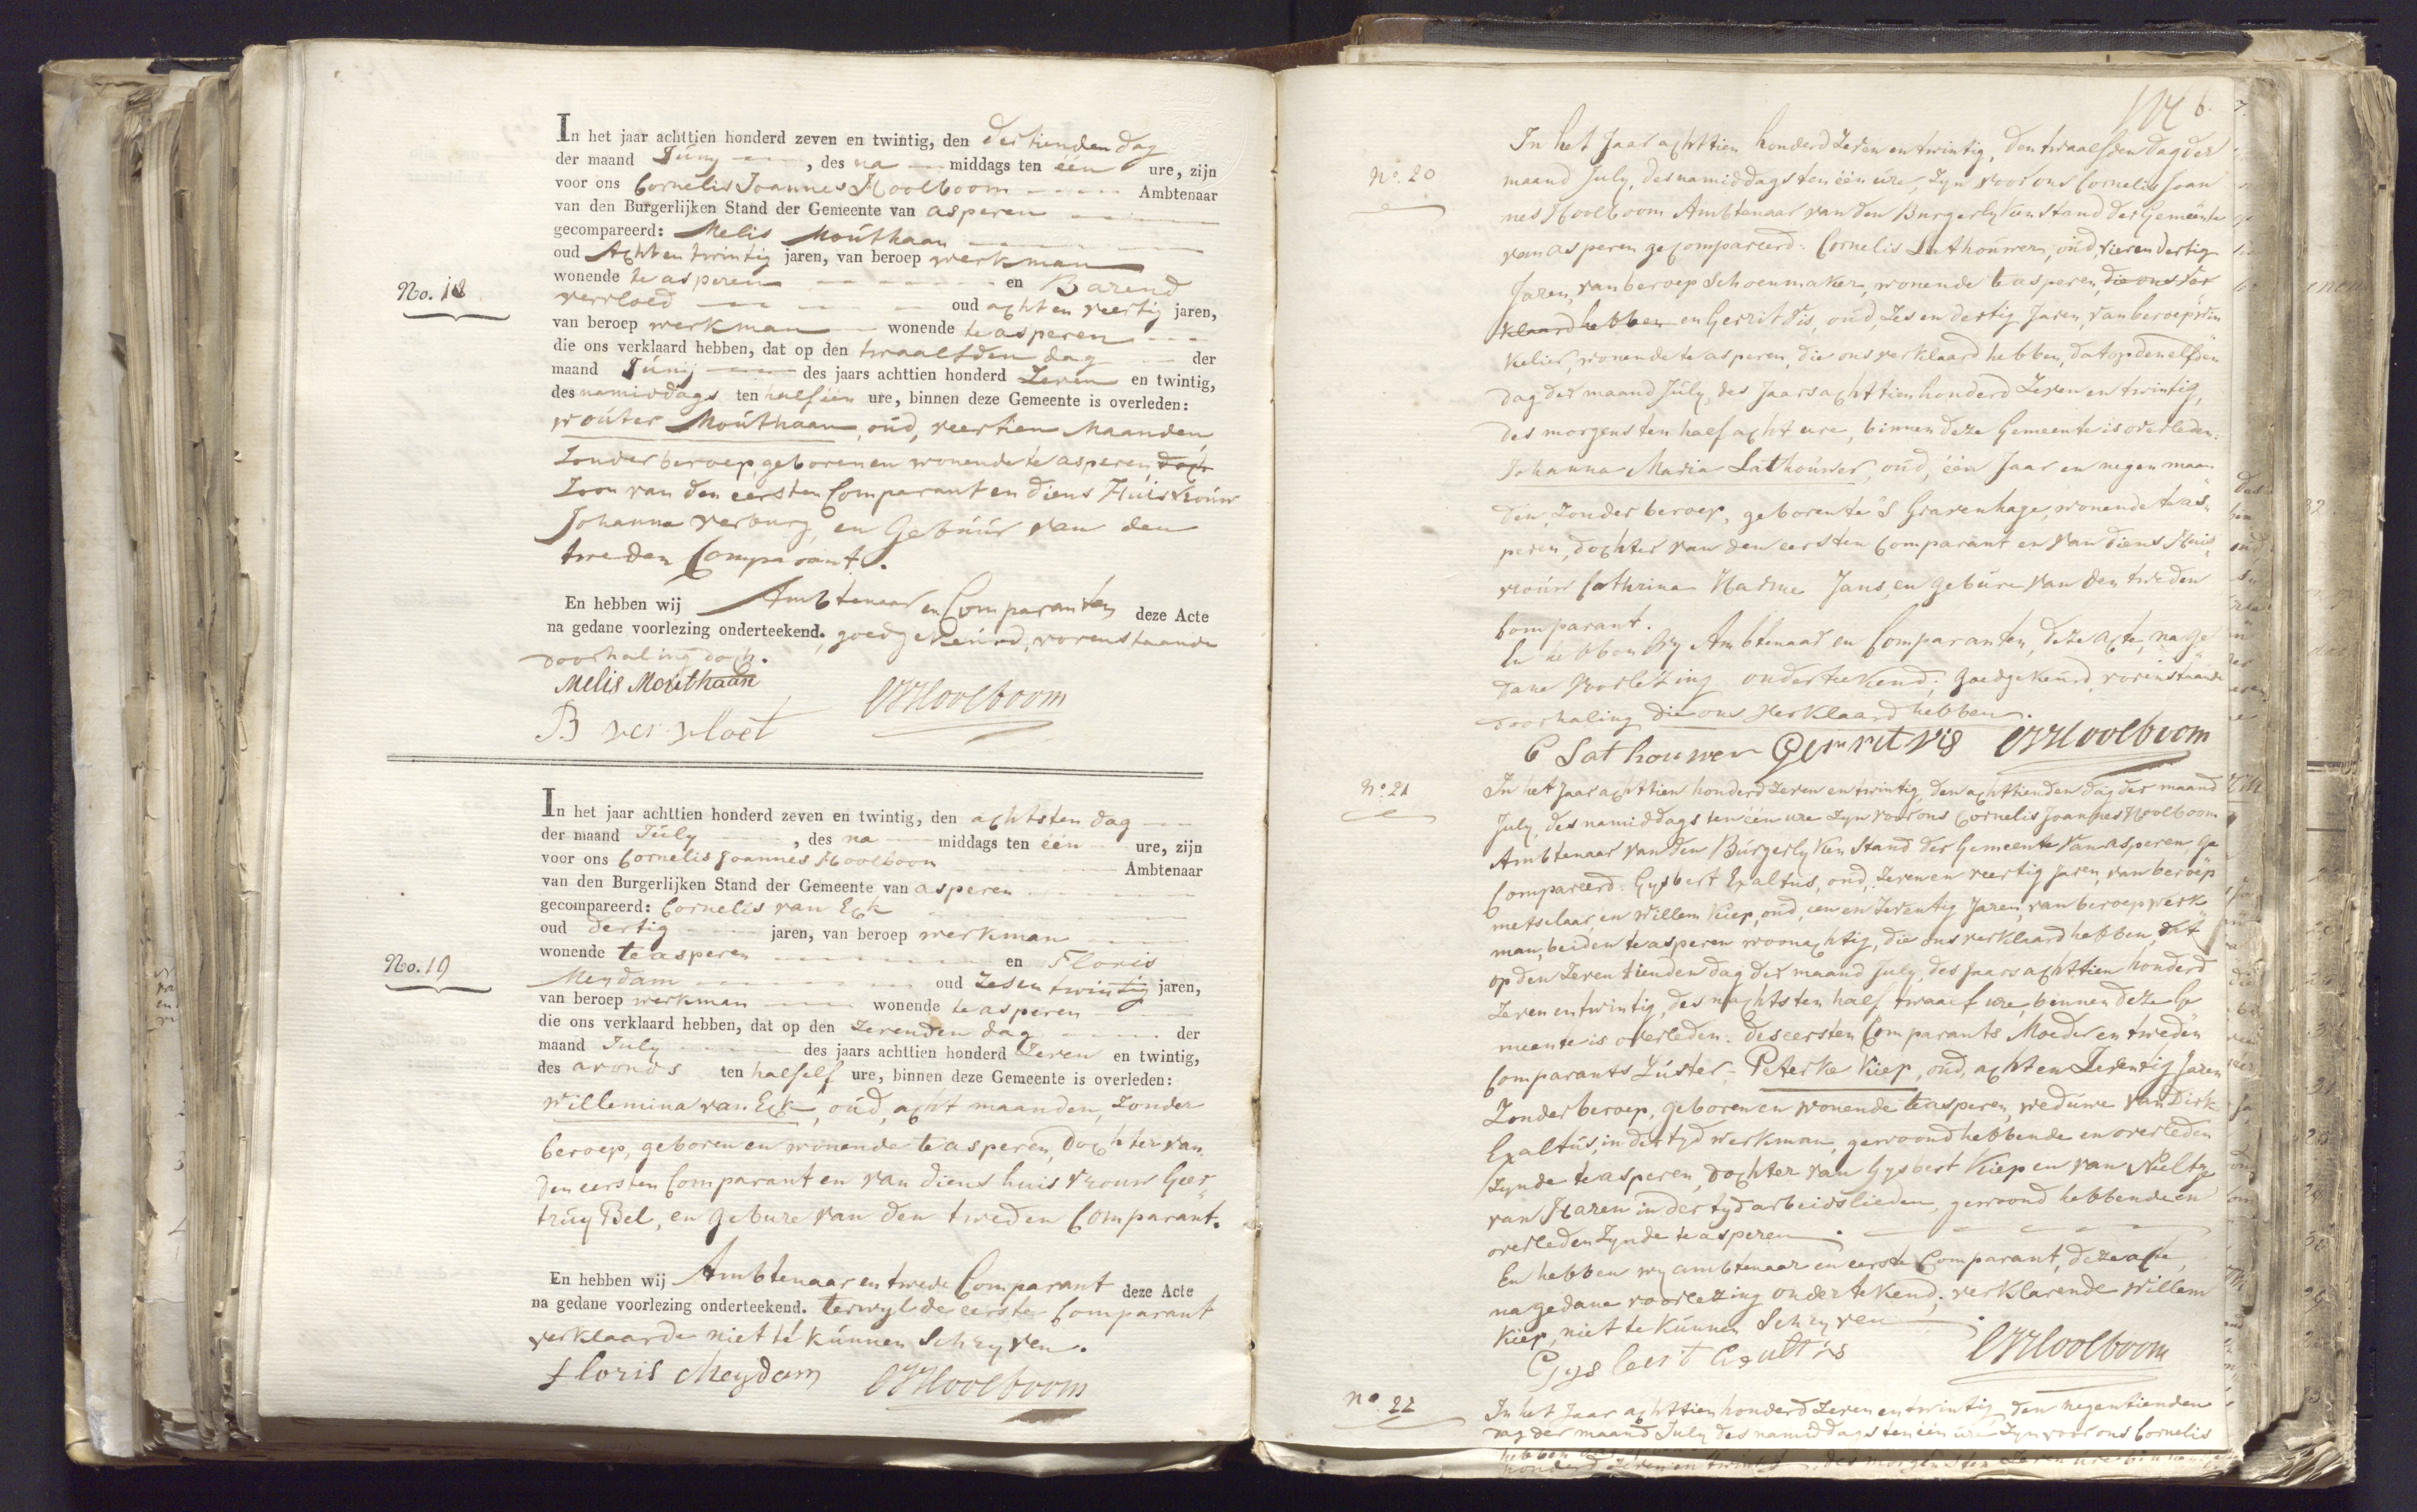 In het jaar achttien honderd zeven en twintig, den dertienden dag
der maand Júny, des na middags ten één ure, zijn
voor ons Cornelis Joannes Hoolboom Ambtenaar
van den Burgerlijken Stand der Gemeente van asperen
gecompareerd: Melis Moúthaan
oud Acht en twintig jaren, van beroep werkman
wonende te asperen en Barend
No. 18
vervloed oud acht en veertig jaren,
van beroep werkman wonende te asperen
die ons verklaard hebben, dat op den twaalfden dag der
maand Júnij des jaars achttien honderd Zeven en twintig,
des namiddags ten half één ure, binnen deze Gemeente is overleden:
Woúter Moúthaan, oúd, veertien Maanden,
Zonder beroep, geboren en wonende te asperen, doch
Zoon van den eersten Comparant en diens Huisvroúw
Johanna verburg, en Gebúúr van den
tweden Comparant.
En hebben wij Ambtenaar en Comparanten deze Acte
na gedane voorlezing onderteekend. goedgekeúrd, vorenstaande
doorhaling doch.
Melis Mouthaan
B ver vloet CJHoolboom
In het jaar achttien honderd zeven en twintig, den achtsten dag
der maand Júly, des na middags ten één ure, zijn
voor ons Cornelis Joannes Hoolboom Ambtenaar
van den Burgerlijken Stand der Gemeente van asperen
gecompareerd: Cornelis van Eck
oud dertig jaren, van beroep werkman
wonende te asperen en Floris
No. 19
Meydam oud Zes en twintig jaren,
van beroep werkman wonende te asperen
die ons verklaard hebben, dat op den Zevenden dag der
maand July des jaars achttien honderd Zeven en twintig,
des avonds ten half elf ure, binnen deze Gemeente is overleden:
Willemina van Eck, oúd, acht maanden, Zonder
beroep, geboren en wonende te asperen, Dochter van
den eersten Comparant en van diens huisvrouw Geer„
trúy Bel, en gebure van den tweden Comparant.
En hebben wij Ambtenaar en twede Comparant deze Acte
na gedane voorlezing onderteekend. terwyl de eerste Comparant
verklaarde niet te kúnnen Schryven.
floris Meydam CJHoolboom
6.
In het Jaar achttien honderd Zeven en twintig, den twaalfden dag der
No. 20
maand July, des namiddags ten één úre, Zyn voor ons Cornelis Joan
nes Hoolboom Ambtenaar van den Burgerlyken Stand der Gemeente
van asperen gecompareerd: Cornelis Lathoúwer, oúd, vier en dertig
Jaren, van beroep Schoenmaker, wonende te asperen, die ons ver
klaard hebben en Gerrit Vis, oúd, Zes en dertig Jaren, van beroep win
kelier, wonende te asperen, die ons verklaard hebben, dat op den elfden
dag der maand Júly, des Jaars achttien honderd Zeven en twintig,
des morgens ten half acht ure, binnen deze Gemeente is overleden:
Johanna Maria Lathoúwer, oúd, één Jaar en negen maan
den, Zonder beroep, geboren te S Gravenhage, wonende te as„
peren, dochter van den eersten Comparant en van diens Huis„
vroúw Cathrina Harme Jans, en gebúre van den tweden
Comparant.
En hebben Wy Ambtenaar en Comparanten, deze acte, na ge
dane Voorlezing ondertekend; Goedgekeúrd, vorenstaande
doorhaling die ons Verklaard hebben.
C Lathouwer Gerrit Vis CJHoolboom
No. 21
In het Jaar achttien honderd Zeven en twintig, den achttienden dag der maand
July, des namiddags ten één ure Zyn voor ons Cornelis Joannes Hoolboom
Ambtenaar van den Búrgerlyken Stand der Gemeente Van asperen, ge
Compareerd: Gysbert Exaltus, oud, Zeven en veertig Jaren, van beroep
metselaar, en Willem Kiep, oud, een en Zeventig Jaren, van beroep werk
man, beiden te asperen woonachtig, die ons verklaard hebben, dat
op den Zeventienden dag der maand July, des Jaars achttien honderd
Zeven en twintig, des nachts ten half twaalf ure, binnen deze Ge
meente is overleden: des eersten Comparants Moeder en tweden
Comparants Zúster, Peterke Kiep, oúd, acht en Zeventig Jaren
Zonder beroep, geboren en wonende te asperen, wedúwe van Dirk
Exaltús, in der tyd werkman, gewoond hebbende en overleden
Zynde te asperen, dochter van Gysbert Kiep en van Neeltje
van Haren in der tyd arbeidslieden, gewoond hebbende en
overleden Zynde te asperen.
En hebben wy ambtenaar en eerste Comparant, deze acte,
na gedane voorlezing ondertekend; verklarende Willem
Kiep, niet te Kúnnen Schryven.
Gysbert Exaltus CJHoolboom
No. 22
In het Jaar achttien honderd Zeven en twintig, den negentienden
dag der maand July des namiddags ten één ure Zyn voor ons Cornelis